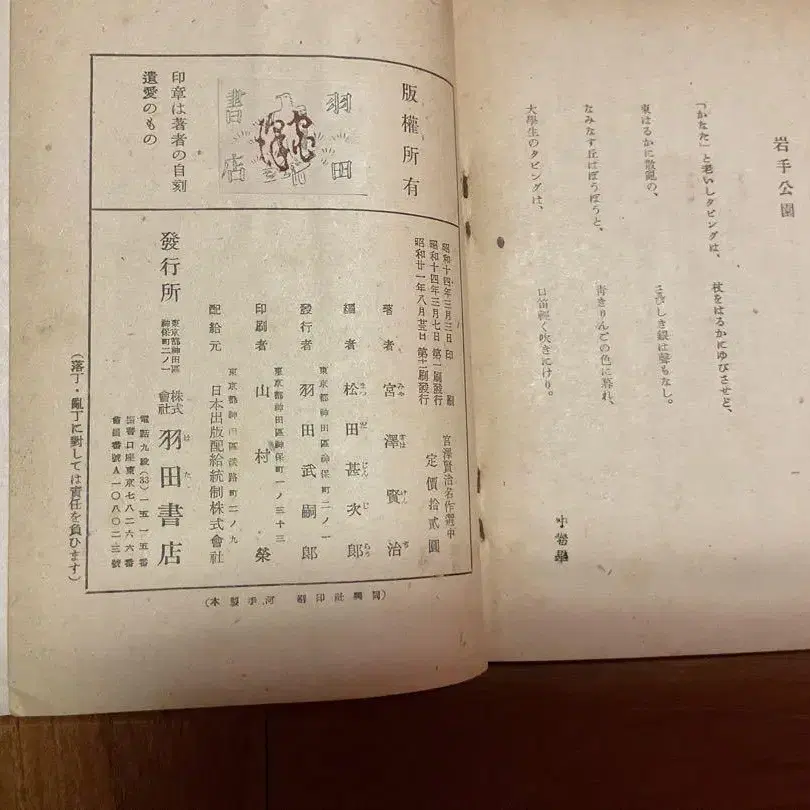 岩手公園
「かなた」と老いしタピングは、
杖をはるかにゆびさせど、
東はるかに散亂の、
さびしき銀は聲もなし。
なみなす丘はぼうぼうと、
青きりんごの色に暮れ、
大學生のタピングは、
口笛軽く吹きにけり。
版權所有
羽田
書店
印章は著者の自刻
遺愛のもの
昭和十四年三月三日 印刷
昭和十四年三月七日 第一刷發行
昭和廿一年八月 日 第十一刷發行
宮澤賢治名作選中
定價拾貳圓
著者 宮澤賢治
編者 松田甚次郎
東京都神田區神保町二ノ一
發行者 羽田武嗣郎
東京都神田區神保町一ノ三十三
印刷者 山村榮
東京都神田區淡路町二ノ九
配給元 日本出版配給統制株式會社
發行所
東京都神田區
神保町二ノ一
株式會社 羽田書店
電話九段(33)一五一五番
振替口座東京七八二六六番
會員番號A一〇八〇二三號
(落丁・亂丁に對しては責任を負ひます)